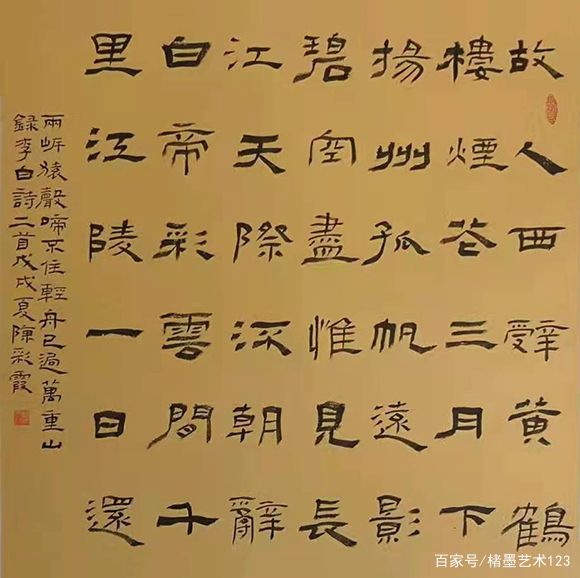 故人西辭黄鶴
樓煙花三月下
揚州孤帆遠影
碧空盡惟見長
江天際流朝辭
白帝彩雲間千
里江陵一日還
兩岸猿聲啼不住輕舟已過萬重山
錄李白詩二首戊戌夏陳彩霞
百家号/楮墨艺术123